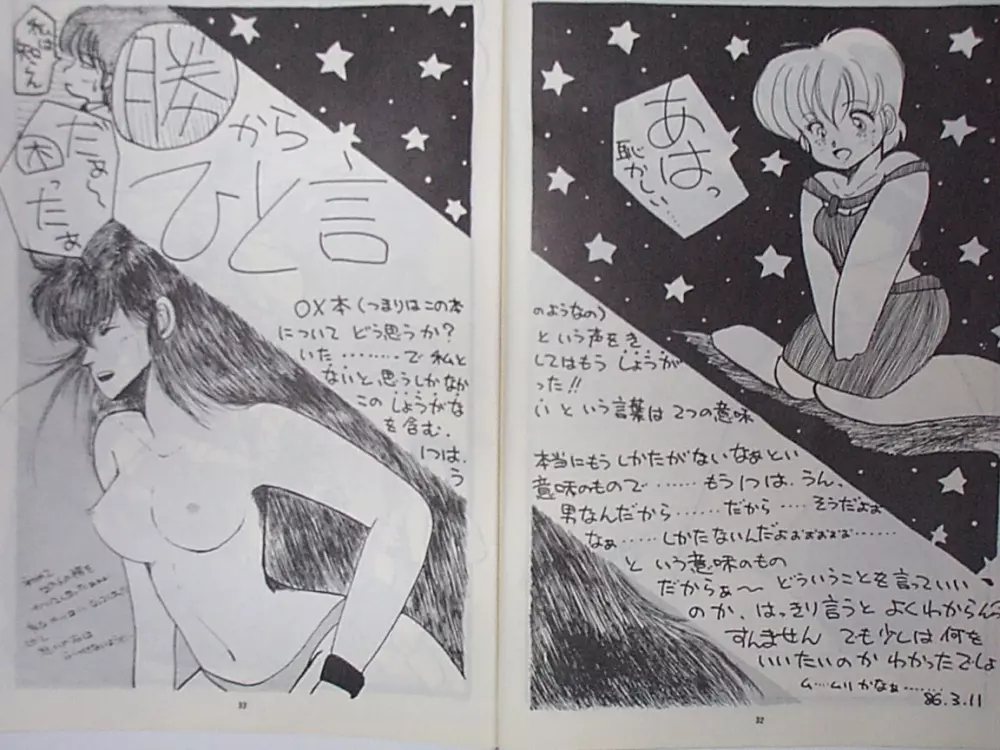 勝
から
ひと言
私は
知らん
だぁ〜
困
ったぁ
OX本(つまりはこの本
について どう思うか?
いた‥‥‥‥で 私と
ないと思うしかなか
この しょうがな
を含む.
1つは.
う
33
あはっ
恥
かしい……
のようなの)
という声をき
してはもう しょうがな
った!!
い という言葉は 2つの意味
本当にもう しかたがないなぁとい
意味のもので‥‥‥もう1つは.うん、
男なんだから‥‥‥だから‥‥そうだよぉ
なぁ‥‥‥しかたないんだよぉぉぉぉぉ‥‥‥
と いう意味のもの
だからぁ〜 どういうことを言っていい
のか、はっきり言うと よくわからん
すんません でも少しは 何を
いいたいのか わかったでしょ
ム‥‥ムリかなぁ‥‥‥
86.3.11
32